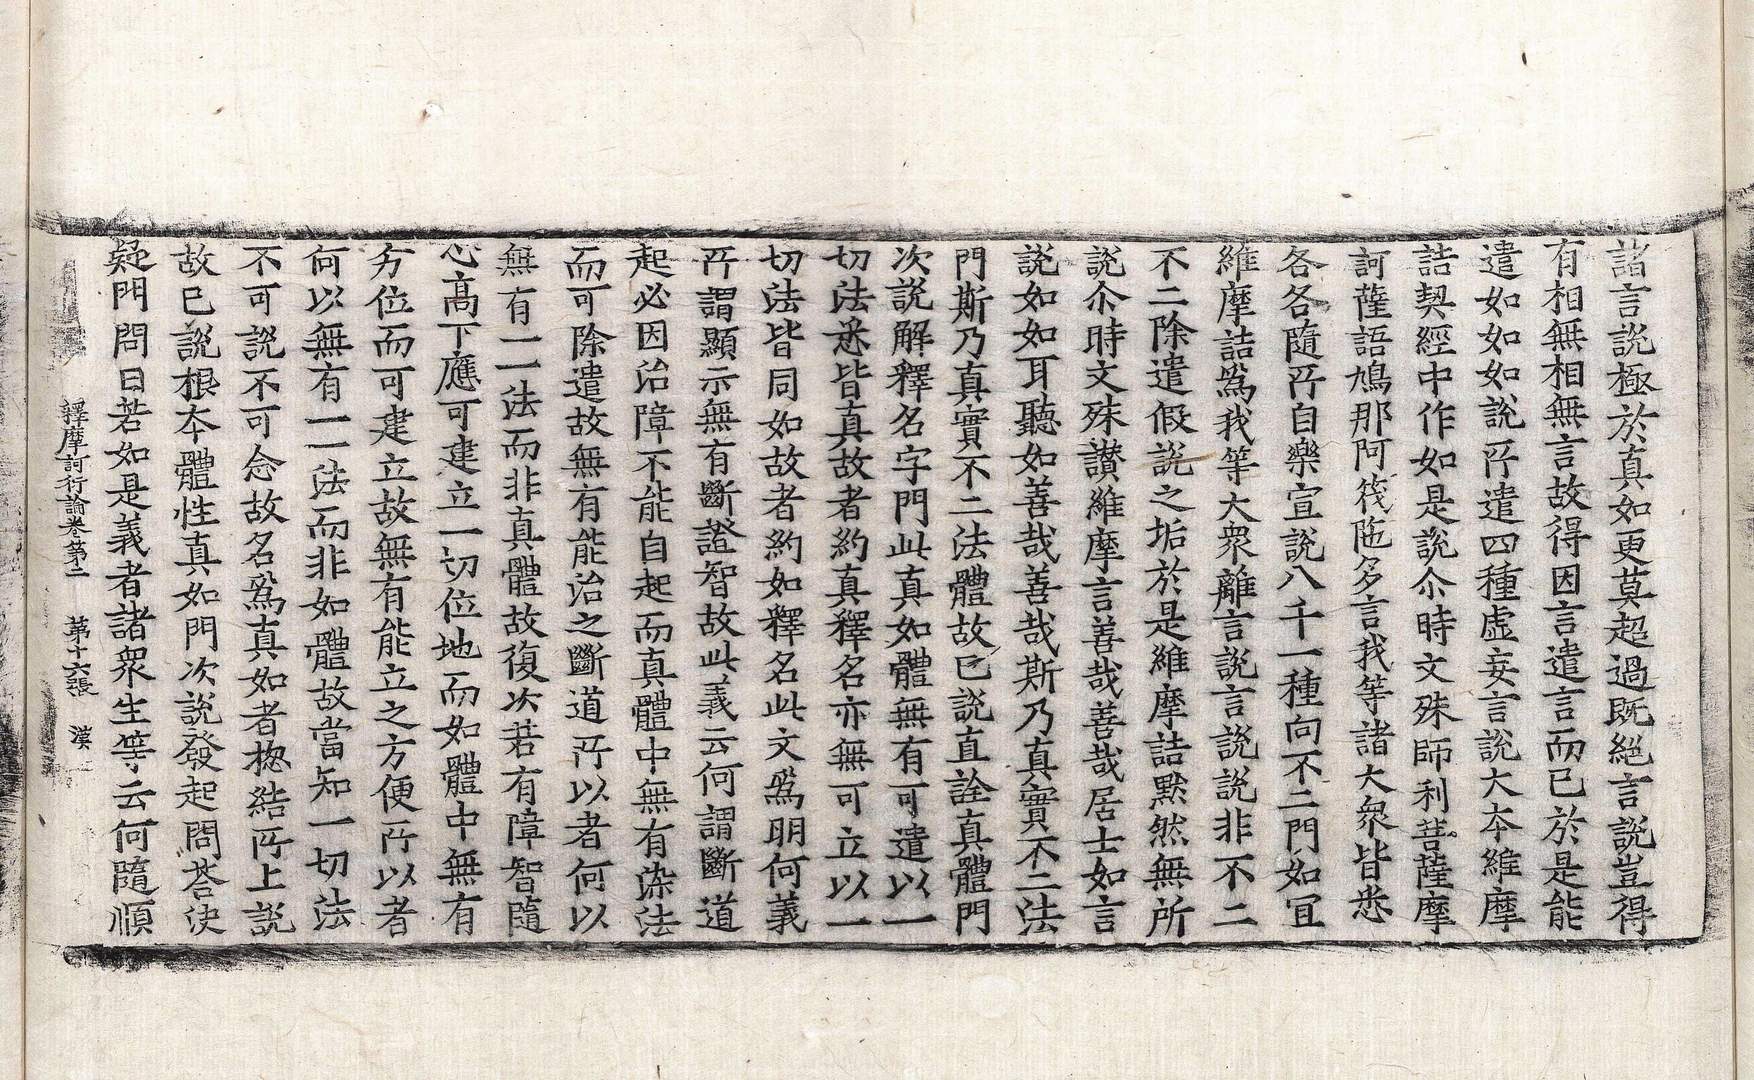 諸言說極於真如更莫超過既絕言說豈得
有相無相無言故得因言遣言而已於是能
遣如如如說所遣四種虛妄言說大本維摩
詰契經中作如是說尒時文殊師利菩薩摩
訶薩語鳩那阿筏陁多言我等諸大衆皆悉
各各隨所自樂宣說八千一種向不二門如冝
維摩詰爲我等大衆離言說言說說非不二
不二除遣假說之垢於是維摩詰默然無所
說尒時文殊讃維摩言善哉善哉居士如言
說如如耳聽如善哉善哉斯乃真實不二法
門斯乃真實不二法體故已說直詮真體門
次說解釋名字門此真如體無有可遣以一
切法悉皆真故者約真釋名亦無可立以一
切法皆同如故者約如釋名此文爲明何義
所謂顯示無有斷證智故此義云何謂斷道
起必因治障不能自起而真體中無有染法
而可除遣故無有能治之斷道所以者何以
無有一一法而非真體故復次若有障智隨
心高下應可建立一切位地而如體中無有
分位而可建立故無有能立之方便所以者
何以無有一一法而非如體故當知一切法
不可說不可念故名爲真如者揔結所上說
故已說根本體性真如門次說發起問荅决
疑門問曰若如是義者諸衆生等云何隨順
釋摩訶衍論卷第二 第十六張 漢